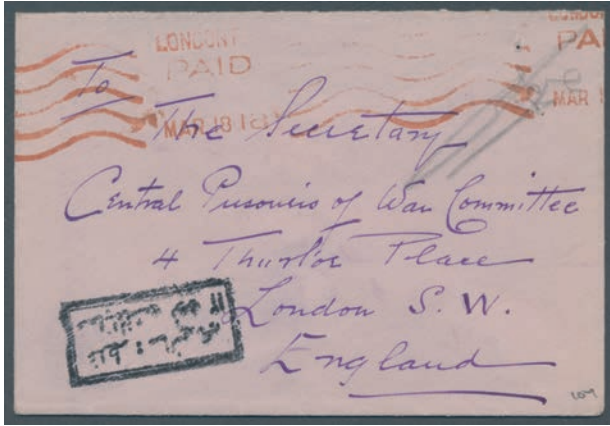 LONDON
PAID
MAR 18 18
PAID
MAR
To
The Secretary
Central Prisoners of War Committee
4 Thurloe Place
London S. W.
England
107